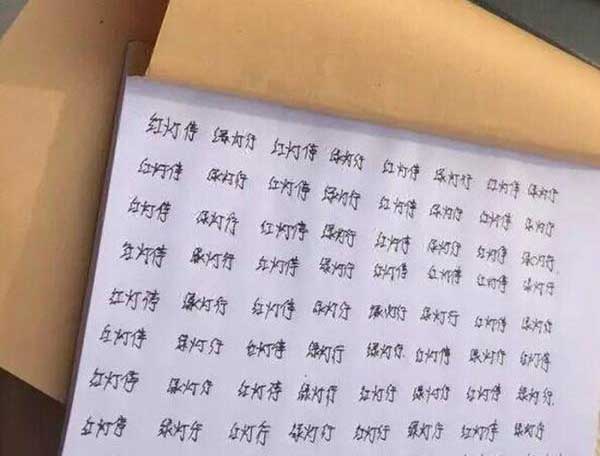 红灯停 绿灯行 红灯停 绿灯行 红灯停 绿灯行 红灯停 绿灯行
红灯停 绿灯行 红灯停 绿灯行 红灯停 绿灯行 红灯停 绿灯行
红灯停 绿灯行 红灯停 绿灯行 红灯停 绿灯行 红灯停 绿灯行
红灯停 绿灯行 红灯停 绿灯行 红灯停 红灯停 红灯停 绿灯行
红灯停 绿灯行 红灯停 绿灯行 绿灯行 绿灯行 红灯停 绿灯行
红灯停 绿灯行 红灯停 绿灯行 绿灯行 红灯停 绿灯行 绿灯行
红灯停 绿灯行 红灯停 绿灯行 红灯行 绿灯行 红灯停 绿灯行
红灯停 绿灯行 红灯行 绿灯行 红灯行 绿灯行 红灯停 绿灯行